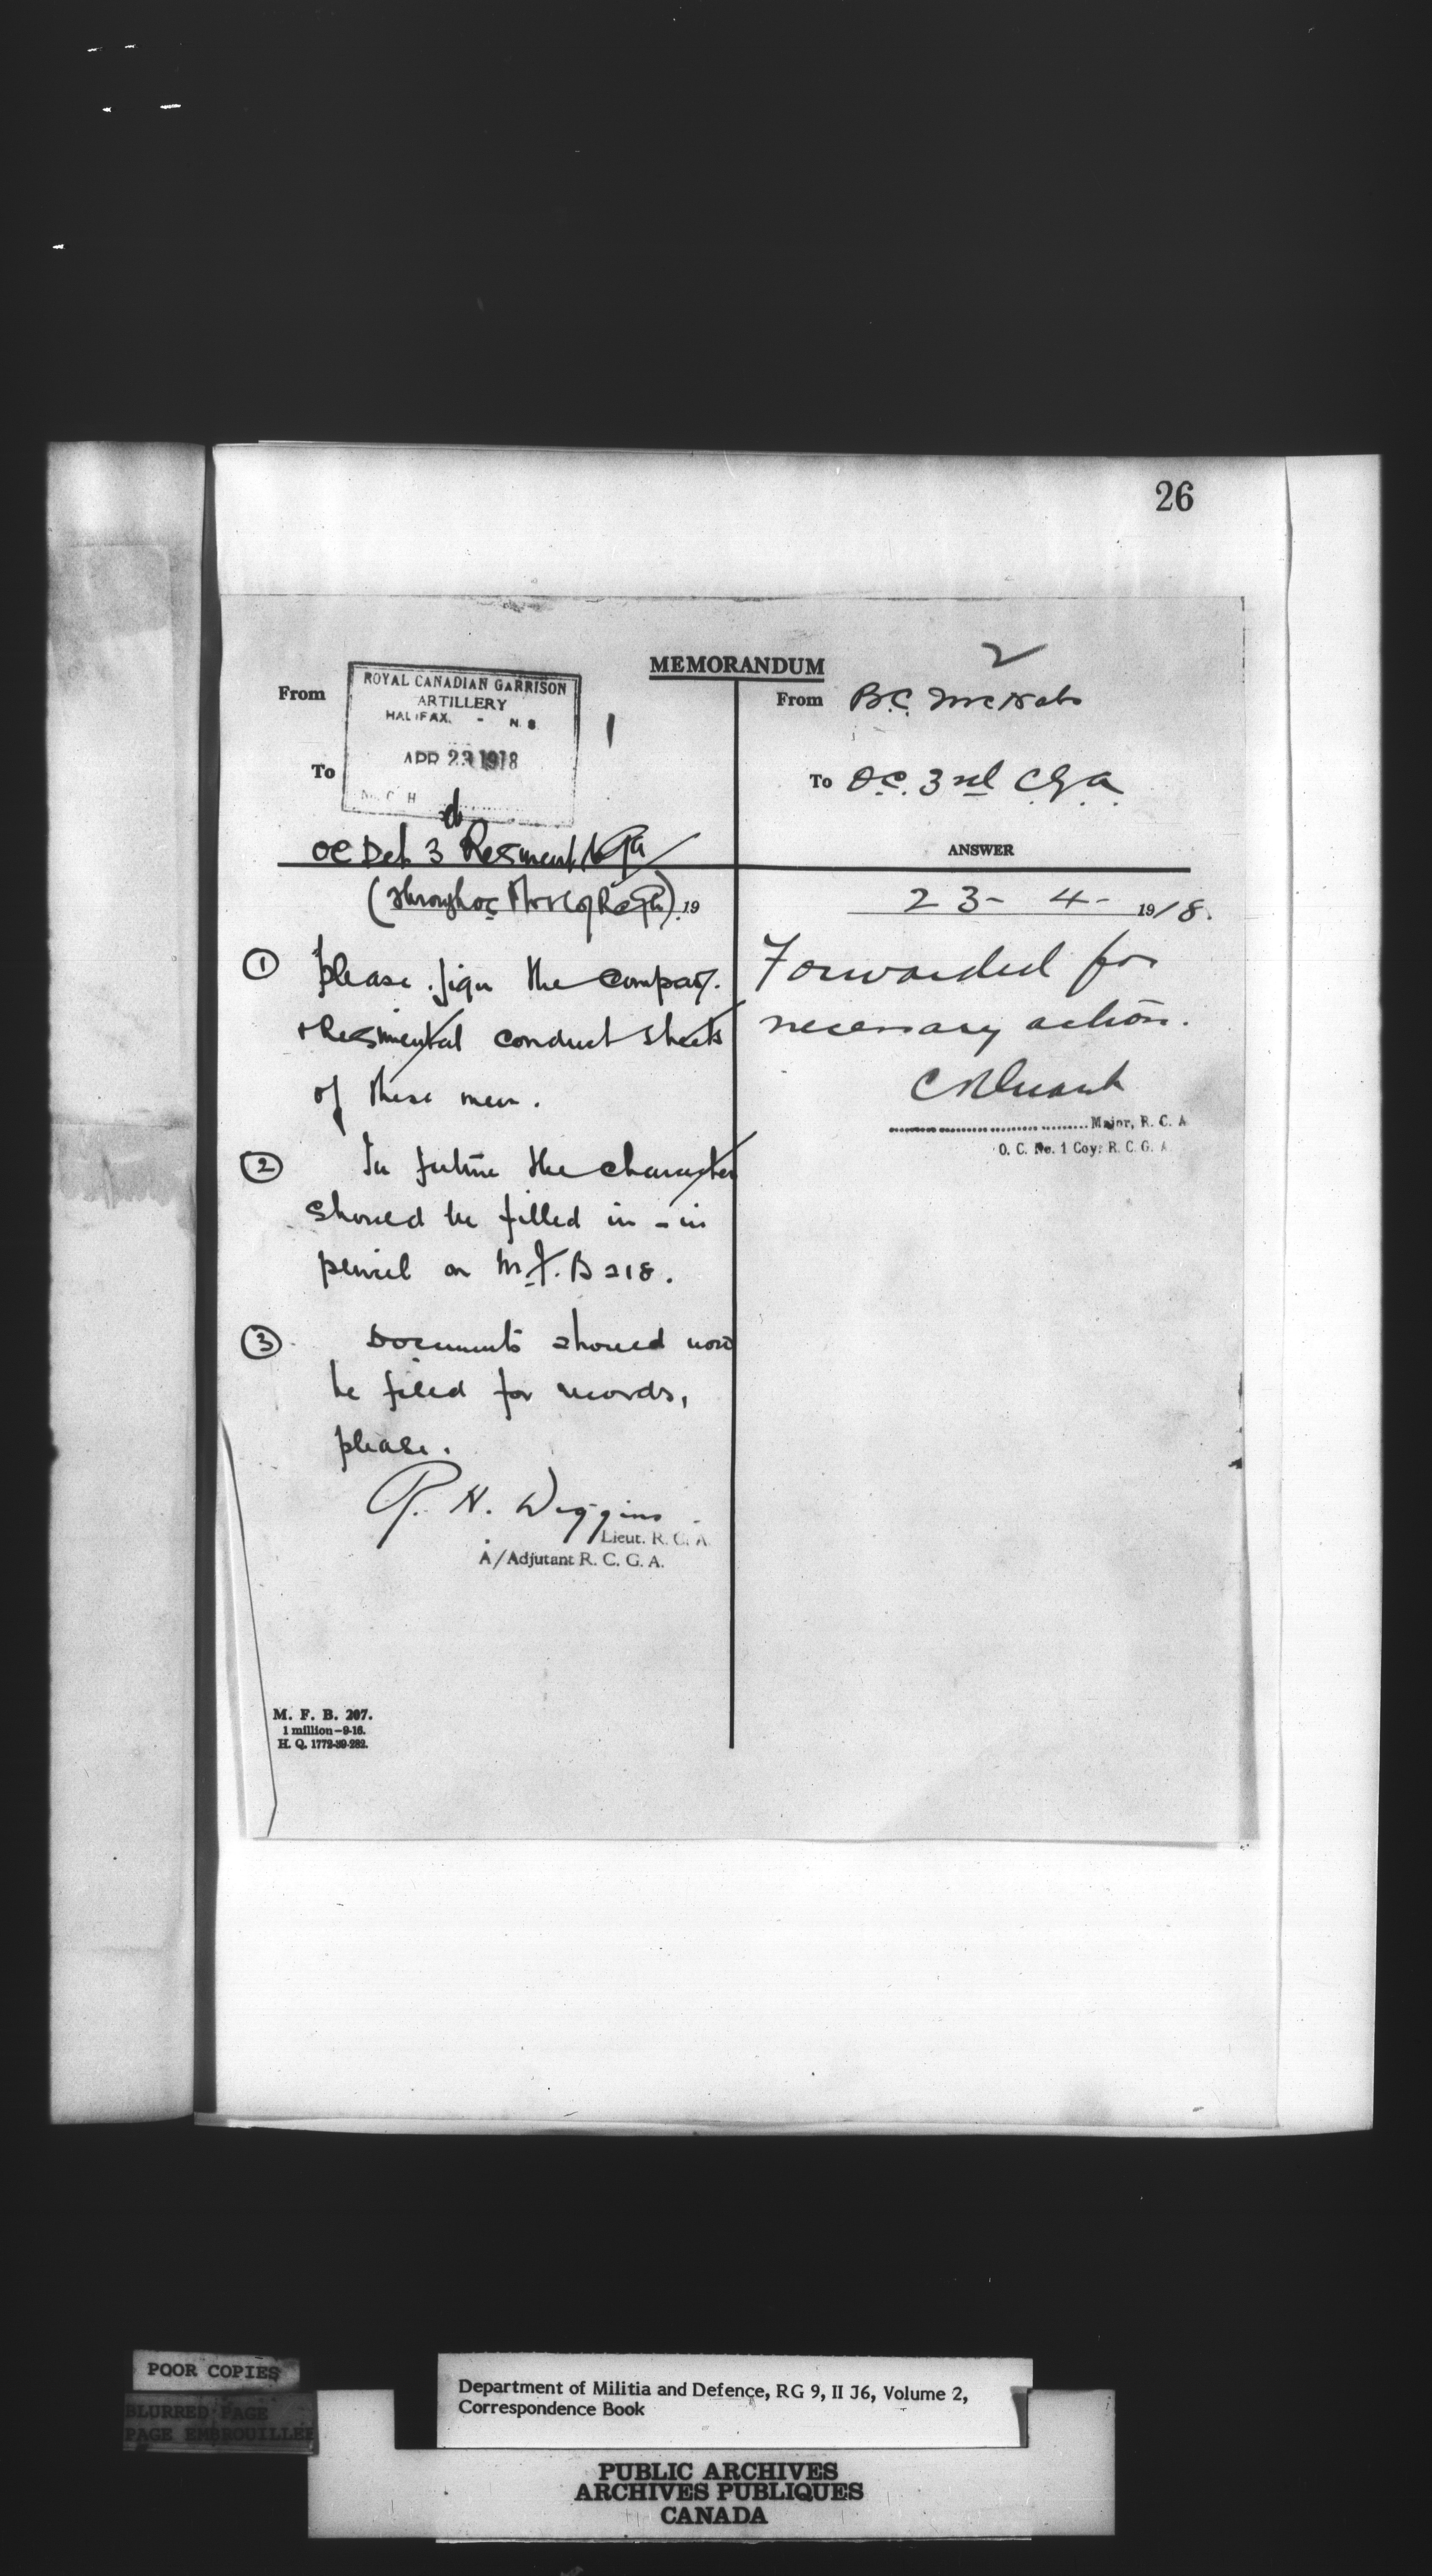 26
MEMORANDUM
From
ROYAL CANADIAN GARRISON
ARTILLERY
HALIFAX. - N.S.
APR 23 1918
1
To
OC Det 3rd Regiment CGA
(through OC No 1 Coy RCGA) 19
① Please sign the company
& Regimental conduct sheets
of these men.
② In future the character
should be filled in - in
pencil on M.F.B 218.
③ Documents should now
be filed for records,
please.
R. H. Wiggins
Lieut. R. C. A.
A/Adjutant R. C. G. A.
M. F. B. 207.
1 million-9-16.
H. Q. 1772-39-282.
2
From B.C. McNab
To O.C. 3rd C.G.A.
ANSWER
23- 4- 1918.
Forwarded for
necessary action.
Major, R. C. A.
O. C. No. 1 Coy: R. C. G. A.
POOR COPIES
BLURRED PAGE
PAGE EMBROUILLEE
Department of Militia and Defence, RG 9, II J6, Volume 2,
Correspondence Book
PUBLIC ARCHIVES
ARCHIVES PUBLIQUES
CANADA